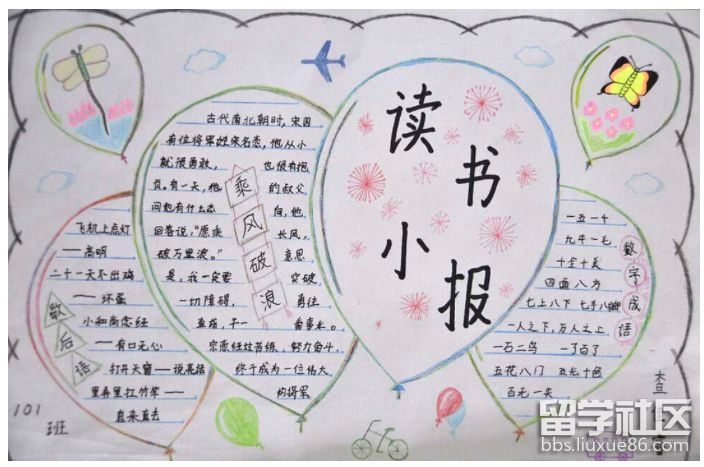 读
书
小
报
古代南北朝时，宋国
有位将军姓宗名悫，他从小
就很勇敢，也很有抱
负。有一天，他的叔父
问他有什么志向，他
回答说：“愿乘长风，
破万里浪。”意思
是，我一定要突破
一切障碍，勇往
直前，干一番事业。
宗悫经过苦练，努力奋斗，
终于成为一位伟大
的将军
乘
风
破
浪
歇
后
语
飞机上点灯
——高明
二十一天不出鸡
——坏蛋
小和尚念经
——有口无心
打开天窗——说亮话
里弄里扛竹竿——
直来直去
数
字
成
语
一五一十
九牛一毛
十全十美
四面八方
七上八下 七手八脚
一人之下，万人之上
一石二鸟 一了百了
五花八门 五光十色
101
班
留学社区
bbs.liuxue86.com